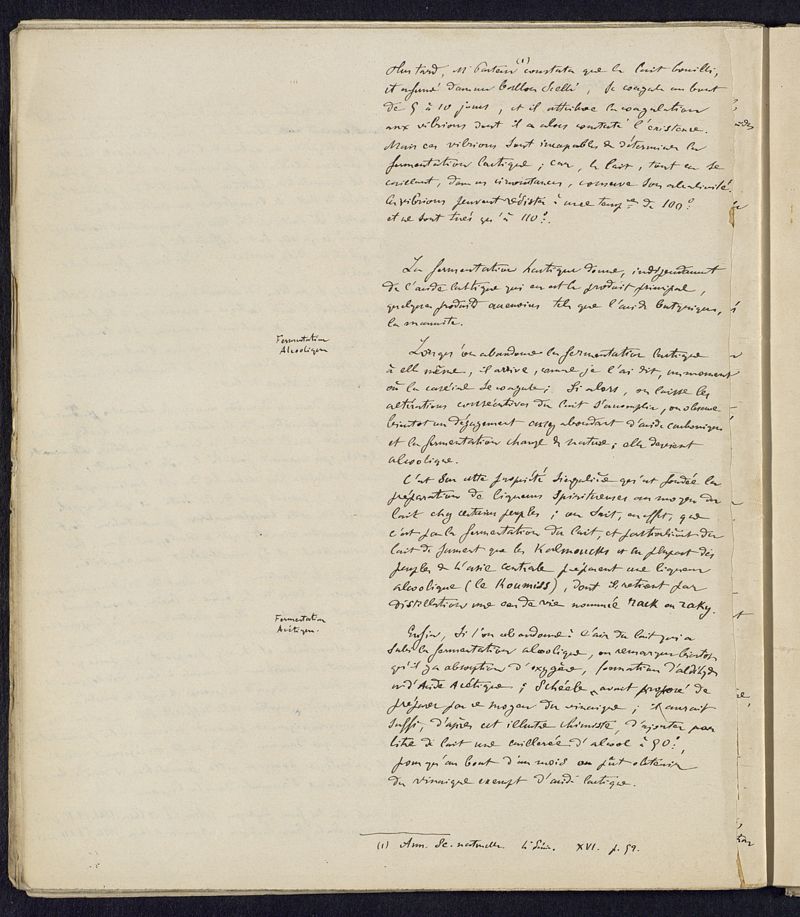 Plus tard, M Pasteur (1) constata que le lait bouilli,
et enfermé dans un ballon scellé, se coagule au bout
de 5 à 10 jours, et il attribue la coagulation
aux vibrions dont il a alors constaté l'existence.
Mais ces vibrions sont incapables de déterminer la
fermentation lactique ; car, le lait, tout en se
caillant, dans ces circonstances, conserve son alcalinité.
Ces vibrions peuvent résister à une temp.re de 100°.
et ne sont tués qu'à 110°.
La fermentation lactique donne, indépendamment
de l'acide lactique qui en est le produit principal,
quelques produits accessoires tels que l'acide butyrique,
la mannite.
Fermentation
Alcoolique
Lorsqu'on abandonne la fermentation lactique
à elle même, il arrive, comme je l'ai dit, un moment
où la caséine se coagule ; Si alors, on laisse les
altérations consécutives du lait s'accomplir, on observe
bientot un dégagement assez abondant d'acide carbonique
et la fermentation change de nature ; elle devient
alcoolique.
C'est sur cette propriété singulière qu'est fondée la
préparation de liqueurs spiritueuses au moyen du
lait chez certains peuples ; on sait, en effet, que
c'est par la fermentation du lait, et particulièrt du
lait de jument que les Kalmoucks et la plupart des
peuples de l'asie centrale préparent une liqueur
alcoolique (le Koumiss), dont ils retirent par
distillation une eau de vie nommée rack ou raky.
Fermentation
Acétique.
Enfin, Si l'on abandonne à l'air du lait qui a
subi la fermentation alcoolique, on remarque bientot
qu'il y a absorption d'oxygène, formation d'aldéhyde
et d'Acide Acétique ; Schéele avait proposé de
préparer par ce moyen du vinaigre ; il aurait
suffi, d'après cet illustre chimiste, d'ajouter par
litre de lait une cuillerée d'alcool à 90°.,
pour qu'au bout d'un mois on pût obtenir
du vinaigre exempt d'acide lactique.
(1) Ann. Sc. naturelles 4e Série. XVI. p. 59.